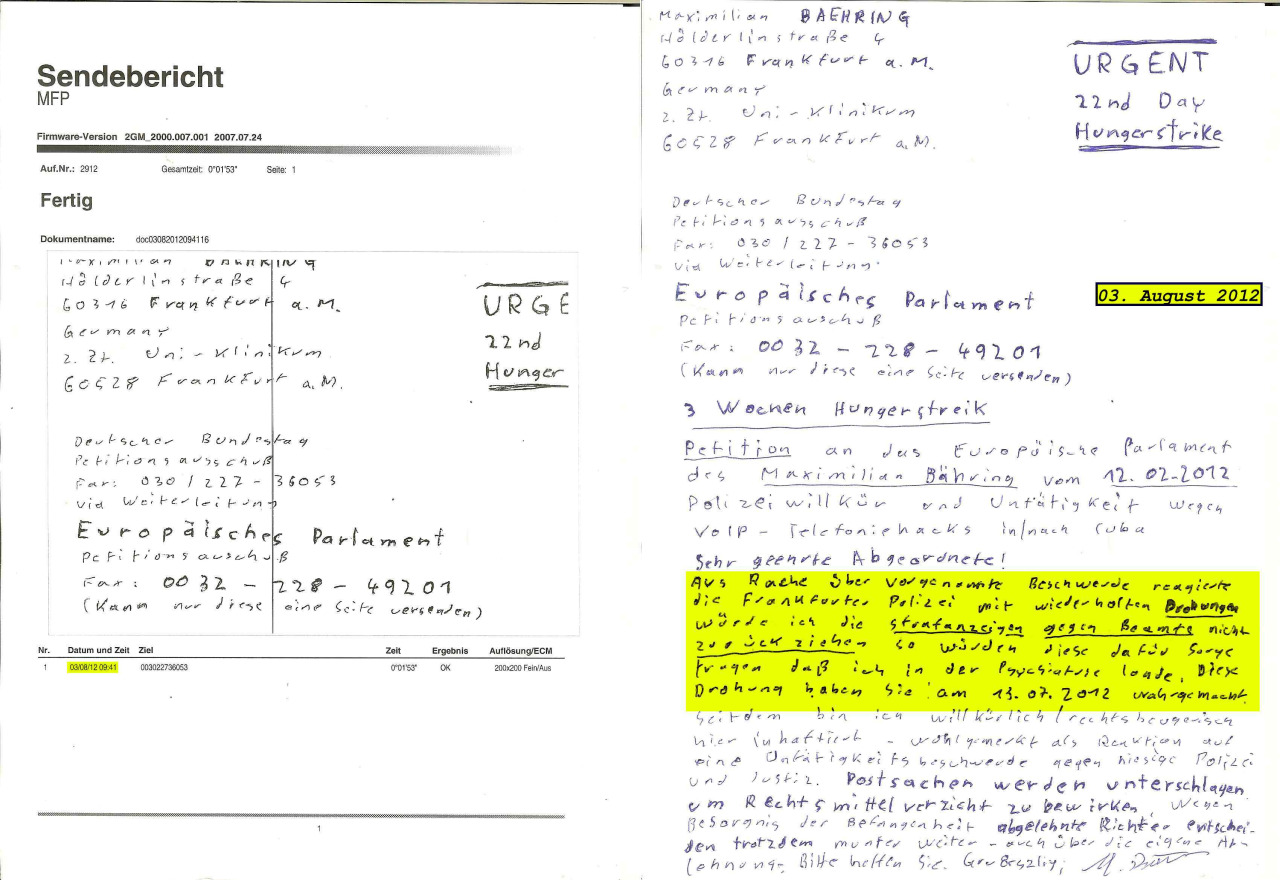 Sendebericht
MFP
Firmware-Version 2GM_2000.007.001 2007.07.24
Auf.Nr.: 2912 Gesamtzeit: 0°01'53" Seite: 1
Fertig
Dokumentname: doc03082012094116
Maximilian BAEHRING
Hölderlinstraße 4
60316 Frankfurt a.M.
Germany
z. Zt. Uni-Klinikum
60528 Frankfurt a.M.
URGE
22nd
Hunger
Deutscher Bundestag
Petitionsausschuß
Fax: 030 / 227 - 36053
via Weiterleitung
Europäisches Parlament
Petitionsauschuß
Fax: 0032 - 228 - 49201
(Kann nur diese eine Seite versenden)
Nr. Datum und Zeit Ziel Zeit Ergebnis Auflösung/ECM
1 03/08/12 09:41 003022736053 0°01'53" OK 200x200 Fein/Aus
1
Maximilian BAEHRING
Hölderlinstraße 4
60316 Frankfurt a.M.
Germany
z. Zt. Uni-Klinikum
60528 Frankfurt a.M.
URGENT
22nd Day
Hungerstrike
Deutscher Bundestag
Petitionsausschuß
Fax: 030 / 227 - 36053
via Weiterleitung:
Europäisches Parlament
03. August 2012
Petitionsauschuß
Fax: 0032 - 228 - 49201
(Kann nur diese eine Seite versenden)
3 Wochen Hungerstreik
Petition an das Europäische Parlament
des Maximilian Bähring vom 12.02.2012
Polizeiwillkür und Untätigkeit wegen
VoIP-Telefoniehacks in/nach Cuba
Sehr geehrte Abgeordnete!
Aus Rache über vorgenannte Beschwerde reagierte
die Frankfurter Polizei mit wiederholten Drohungen
würde ich die strafanzeigen gegen Beamte nicht
zurück ziehen so würden diese dafür Sorge
tragen daß ich in der Psychiatrie lande. Diese
Drohung haben Sie am 13.07.2012 wahrgemacht.
Seitdem bin ich willkürlich/rechtsbeugerisch
hier inhaftiert - wohlgemerkt als Reaktion auf
eine Untätigkeitsbeschwerde gegen hiesige Polizei
und Justiz. Postsachen werden unterschlagen
um Rechtsmittelverzicht zu bewirken. Wegen
Besorgnis der Befangenheit abgelehnte Richter entschei-
den trotzdem munter weiter - auch über die eigene Ab-
lehnung. Bitte helfen Sie.